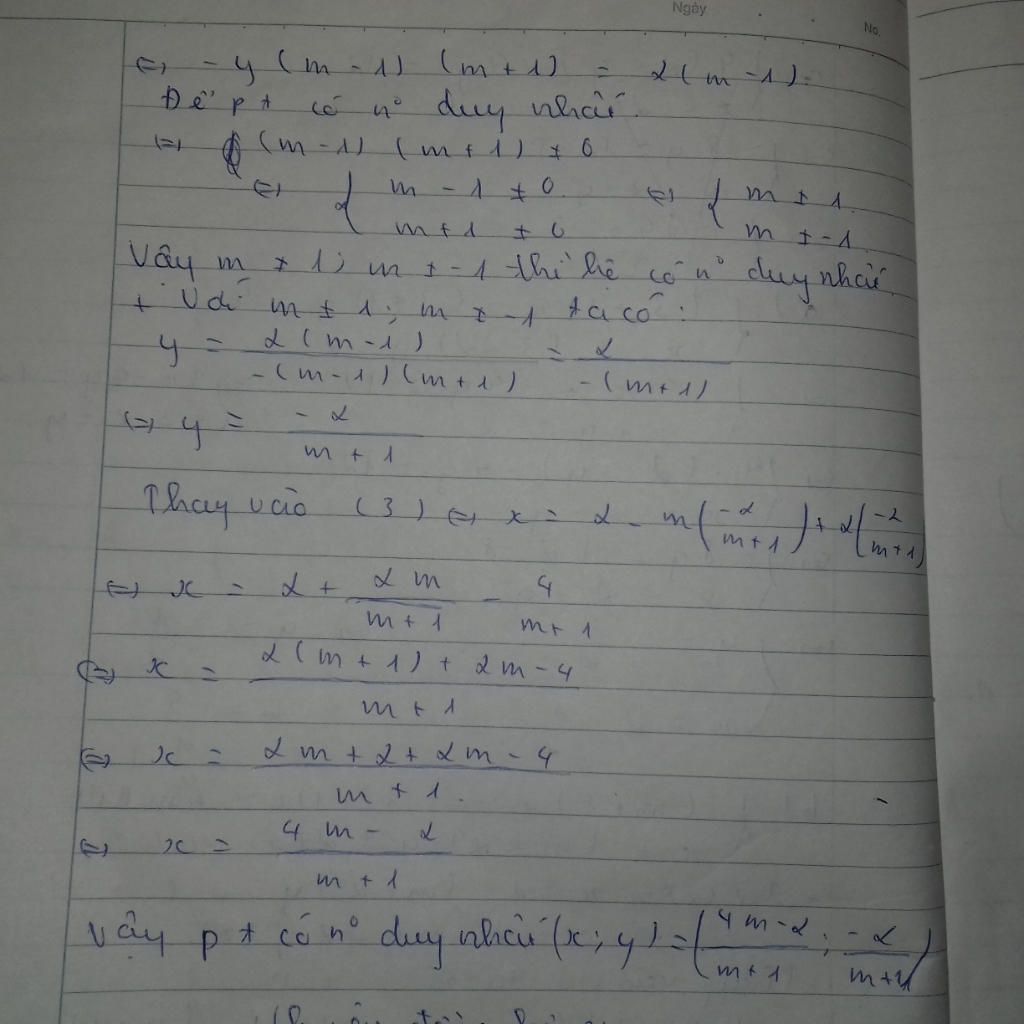 Ngày
No.
⇔ - y (m - 1) (m + 1) = 2 (m - 1).
Để pt có n° duy nhất.
⇔ (m - 1) (m + 1) ≠ 0
⇔ { m - 1 ≠ 0 ⇔ { m ≠ 1
m + 1 ≠ 0 m ≠ -1
Vậy m ≠ 1; m ≠ -1 thì hệ có n° duy nhất.
+ Với m ≠ 1; m ≠ -1 ta có:
y = 2(m-1) / -(m-1)(m+1) = 2 / -(m+1)
⇔ y = -2 / m + 1
Thay vào (3) ⇔ x = 2 - m(-2 / m+1) + 2(-2 / m+1)
⇔ x = 2 + 2m / m+1 - 4 / m+1
⇔ x = 2(m+1) + 2m - 4 / m + 1
⇔ x = 2m + 2 + 2m - 4 / m + 1.
⇔ x = 4m - 2 / m + 1
Vậy pt có n° duy nhất (x; y) = (4m-2 / m+1; -2 / m+1)